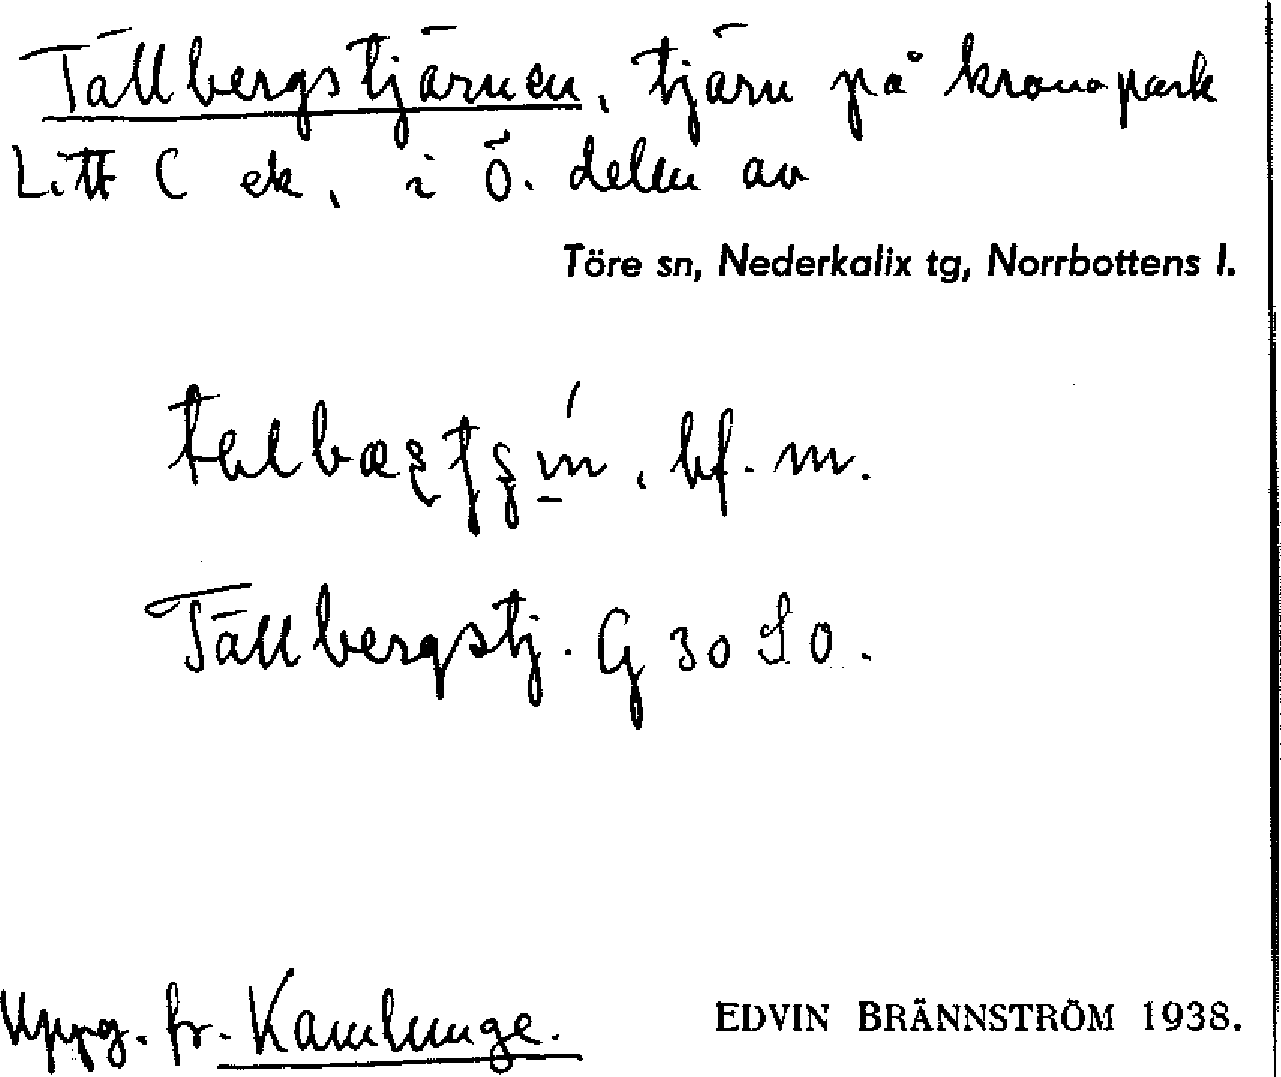 Tällbergstjärnen, tjärn på kronopark
Litt C ek, i ö. delen av
Töre sn, Nederkalix tg, Norrbottens l.
bf. m.
Tällbergstj. G 30 SO.
Uppg. fr. Kamlunge.
EDVIN BRÄNNSTRÖM 1938.